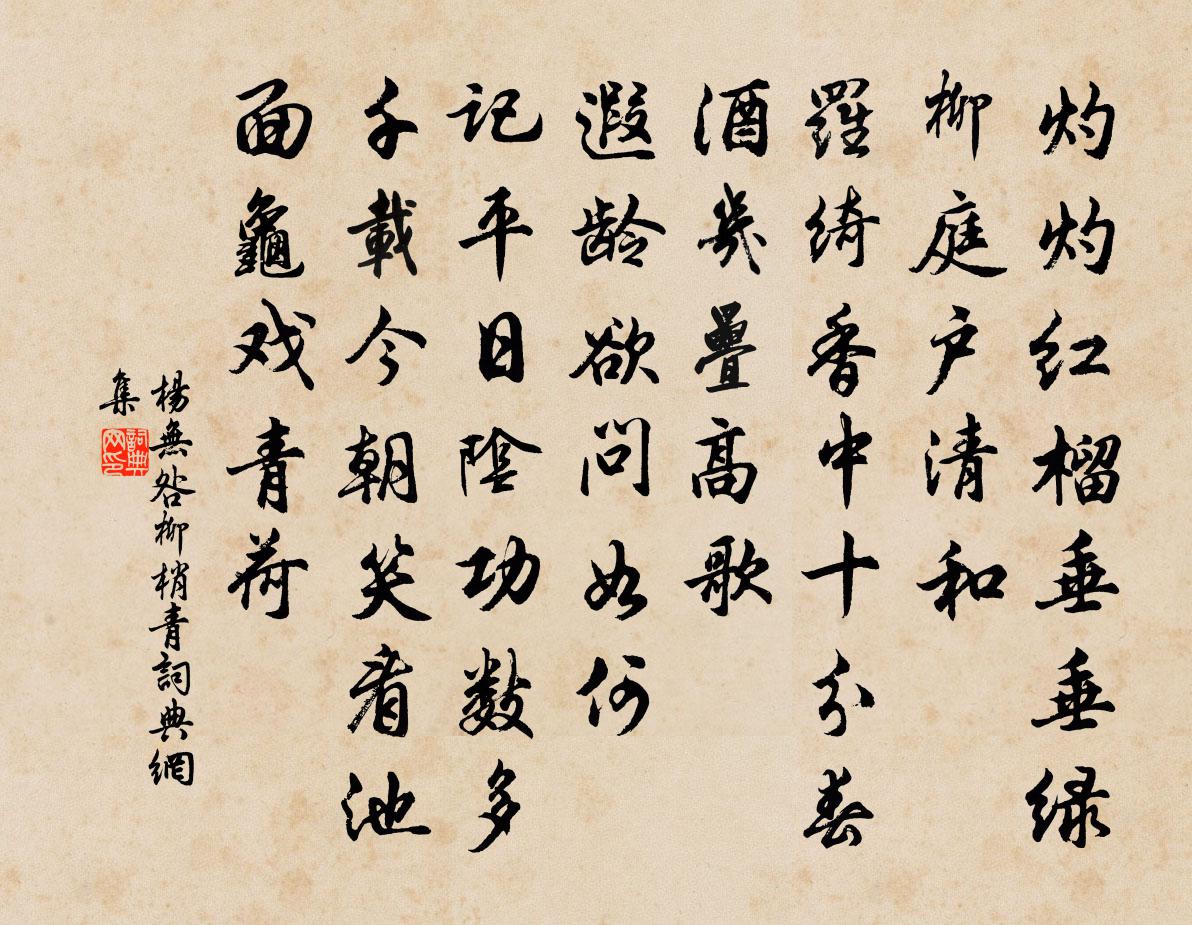 灼灼红榴垂垂绿
柳庭户清和
羅绮香中十分春
酒幾疊高歌
遐龄欲问如何
记平日陰功数多
千載今朝笑看池
面龜戏青荷
楊無咎柳梢青詞典網
集
詞典
网印